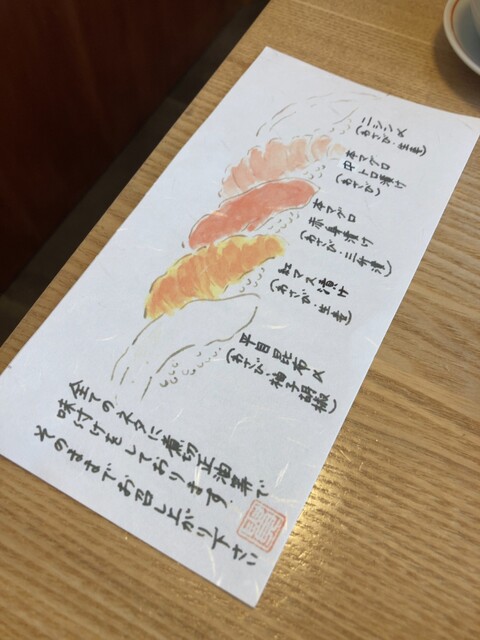 ニシン〆
(わさび・生姜)
本マグロ
中トロ漬け
(わさび)
本マグロ
赤身漬け
(わさび・三升漬)
紅マス漬け
(わさび・生姜)
平目昆布〆
(わさび・柚子胡椒)
全てのネタに煮切正油等で
味付けをしております.
そのままでお召し上がり下さい